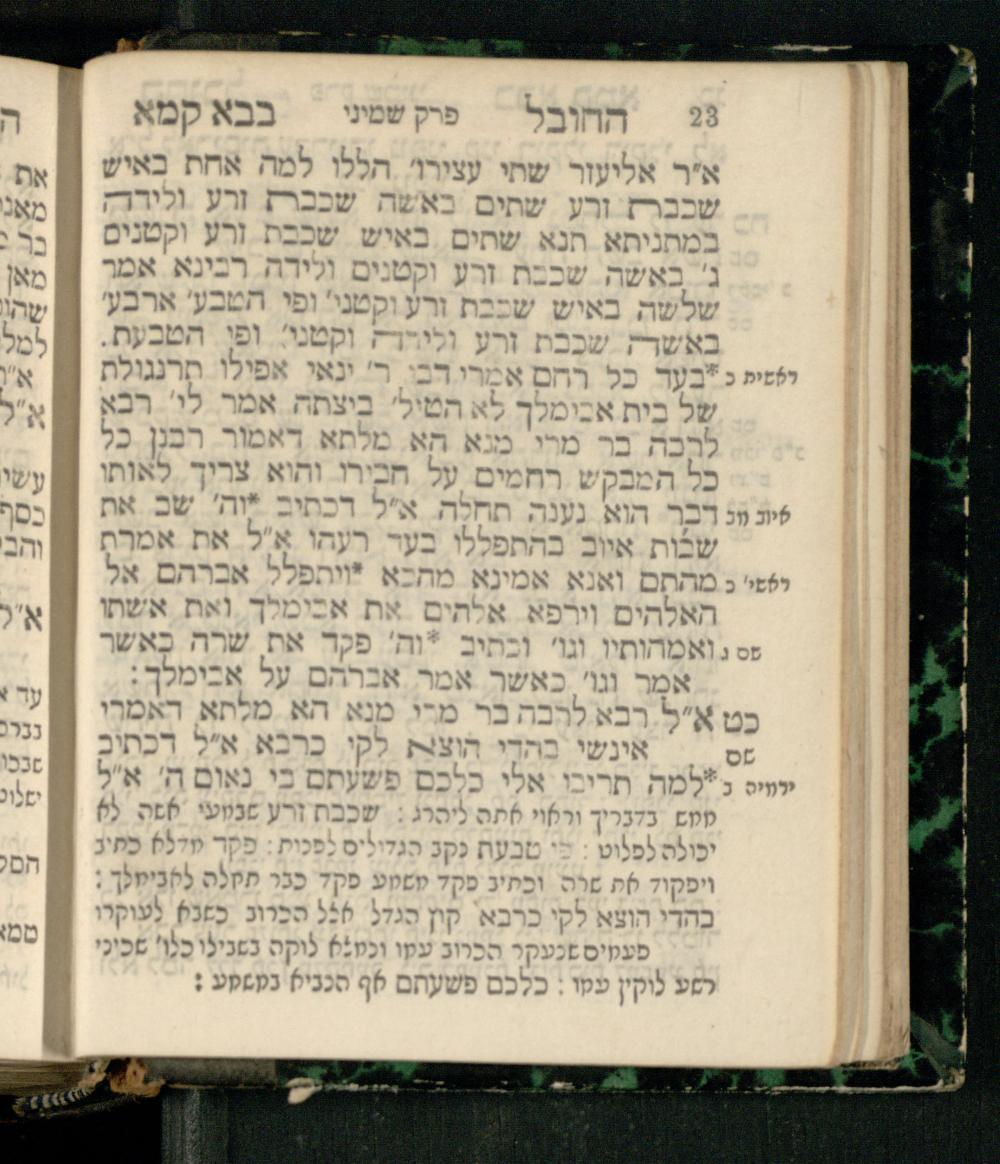 23 החובל פרק שמיני בבא קמא
א״ר אליעזר שתי עצירו׳ הללו למה אחת באיש
שכבת זרע שתים באשה שכבת זרע ולידה
במתניתא תנא שתים באיש שכבת זרע וקטנים
ג׳ באשה שכבת זרע וקטנים ולידה רבינא אמר
שלשה באיש שכבת זרע וקטני׳ ופי הטבע׳ ארבע׳
באשה שכבת זרע ולידה וקטני׳ ופי הטבעת.
ראשית כ *בעד כל רחם אמרי דבי ר׳ ינאי אפילו תרנגולת
של בית אבימלך לא הטיל׳ ביצתה אמר לי׳ רבא
לרבה בר מרי מנא הא מלתא דאמור רבנן כל
כל המבקש רחמים על חבירו והוא צריך לאותו
איוב מב דבר הוא נענה תחלה א״ל דכתיב *וה׳ שב את
שבות איוב בהתפללו בעד רעהו א״ל את אמרת
ראשי׳ כ מהתם ואנא אמינא מהכא *ויתפלל אברהם אל
האלהים וירפא אלהים את אבימלך ואת אשתו
שם ואמהותיו וגו׳ וכתיב *וה׳ פקד את שרה כאשר
אמר וגו׳ כאשר אמר אברהם על אבימלך :
כט א״ל רבא לרבה בר מרי מנא הא מלתא דאמרי
שם אינשי בהדי הוצא לקי כרבא א״ל דכתיב
ירמיה ב *למה תריבו אלי כלכם פשעתם בי נאום ה׳ א״ל
ממש בדבריך וראוי אתה ליהרג : שכבת זרע שבמעי אשה לא
יכולה לפלוט : פי טבעת נקב הגדולים לפנות : פקד מדלא כתיב
ויפקוד את שרה וכתיב פקד משמע פקד כבר תחלה לאבימלך :
בהדי הוצא לקי כרבא קוץ הגדל אצל הכרוב כשבא לעוקרו
פעמים שנעקר הכרוב עמו ונמצא לוקה בשבילו כלו׳ שכיני
רשע לוקין עמו : כלכם פשעתם אף הנביא במשמע :